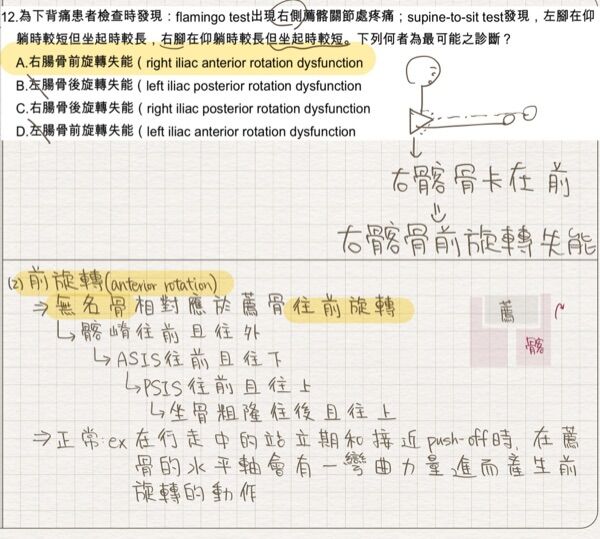 12.為下背痛患者檢查時發現：flamingo test出現右側薦髂關節處疼痛；supine-to-sit test發現，左腳在仰
躺時較短但坐起時較長，右腳在仰躺時較長但坐起時較短。下列何者為最可能之診斷？
A.右腸骨前旋轉失能（right iliac anterior rotation dysfunction
B.左腸骨後旋轉失能（left iliac posterior rotation dysfunction
C.右腸骨後旋轉失能（right iliac posterior rotation dysfunction
D.左腸骨前旋轉失能（left iliac anterior rotation dysfunction
↓
右髂骨卡在前
⇓
右髂骨前旋轉失能
(2) 前旋轉(anterior rotation)
⇒ 無名骨相對應於薦骨往前旋轉
↳髂嵴往前且往外
↳ASIS往前且往下
↳PSIS往前且往上
↳坐骨粗隆往後且往上
薦
髂
⇒正常:ex在行走中的站立期和接近push-off時,在薦
骨的水平軸會有一彎曲力量進而產生前
旋轉的動作